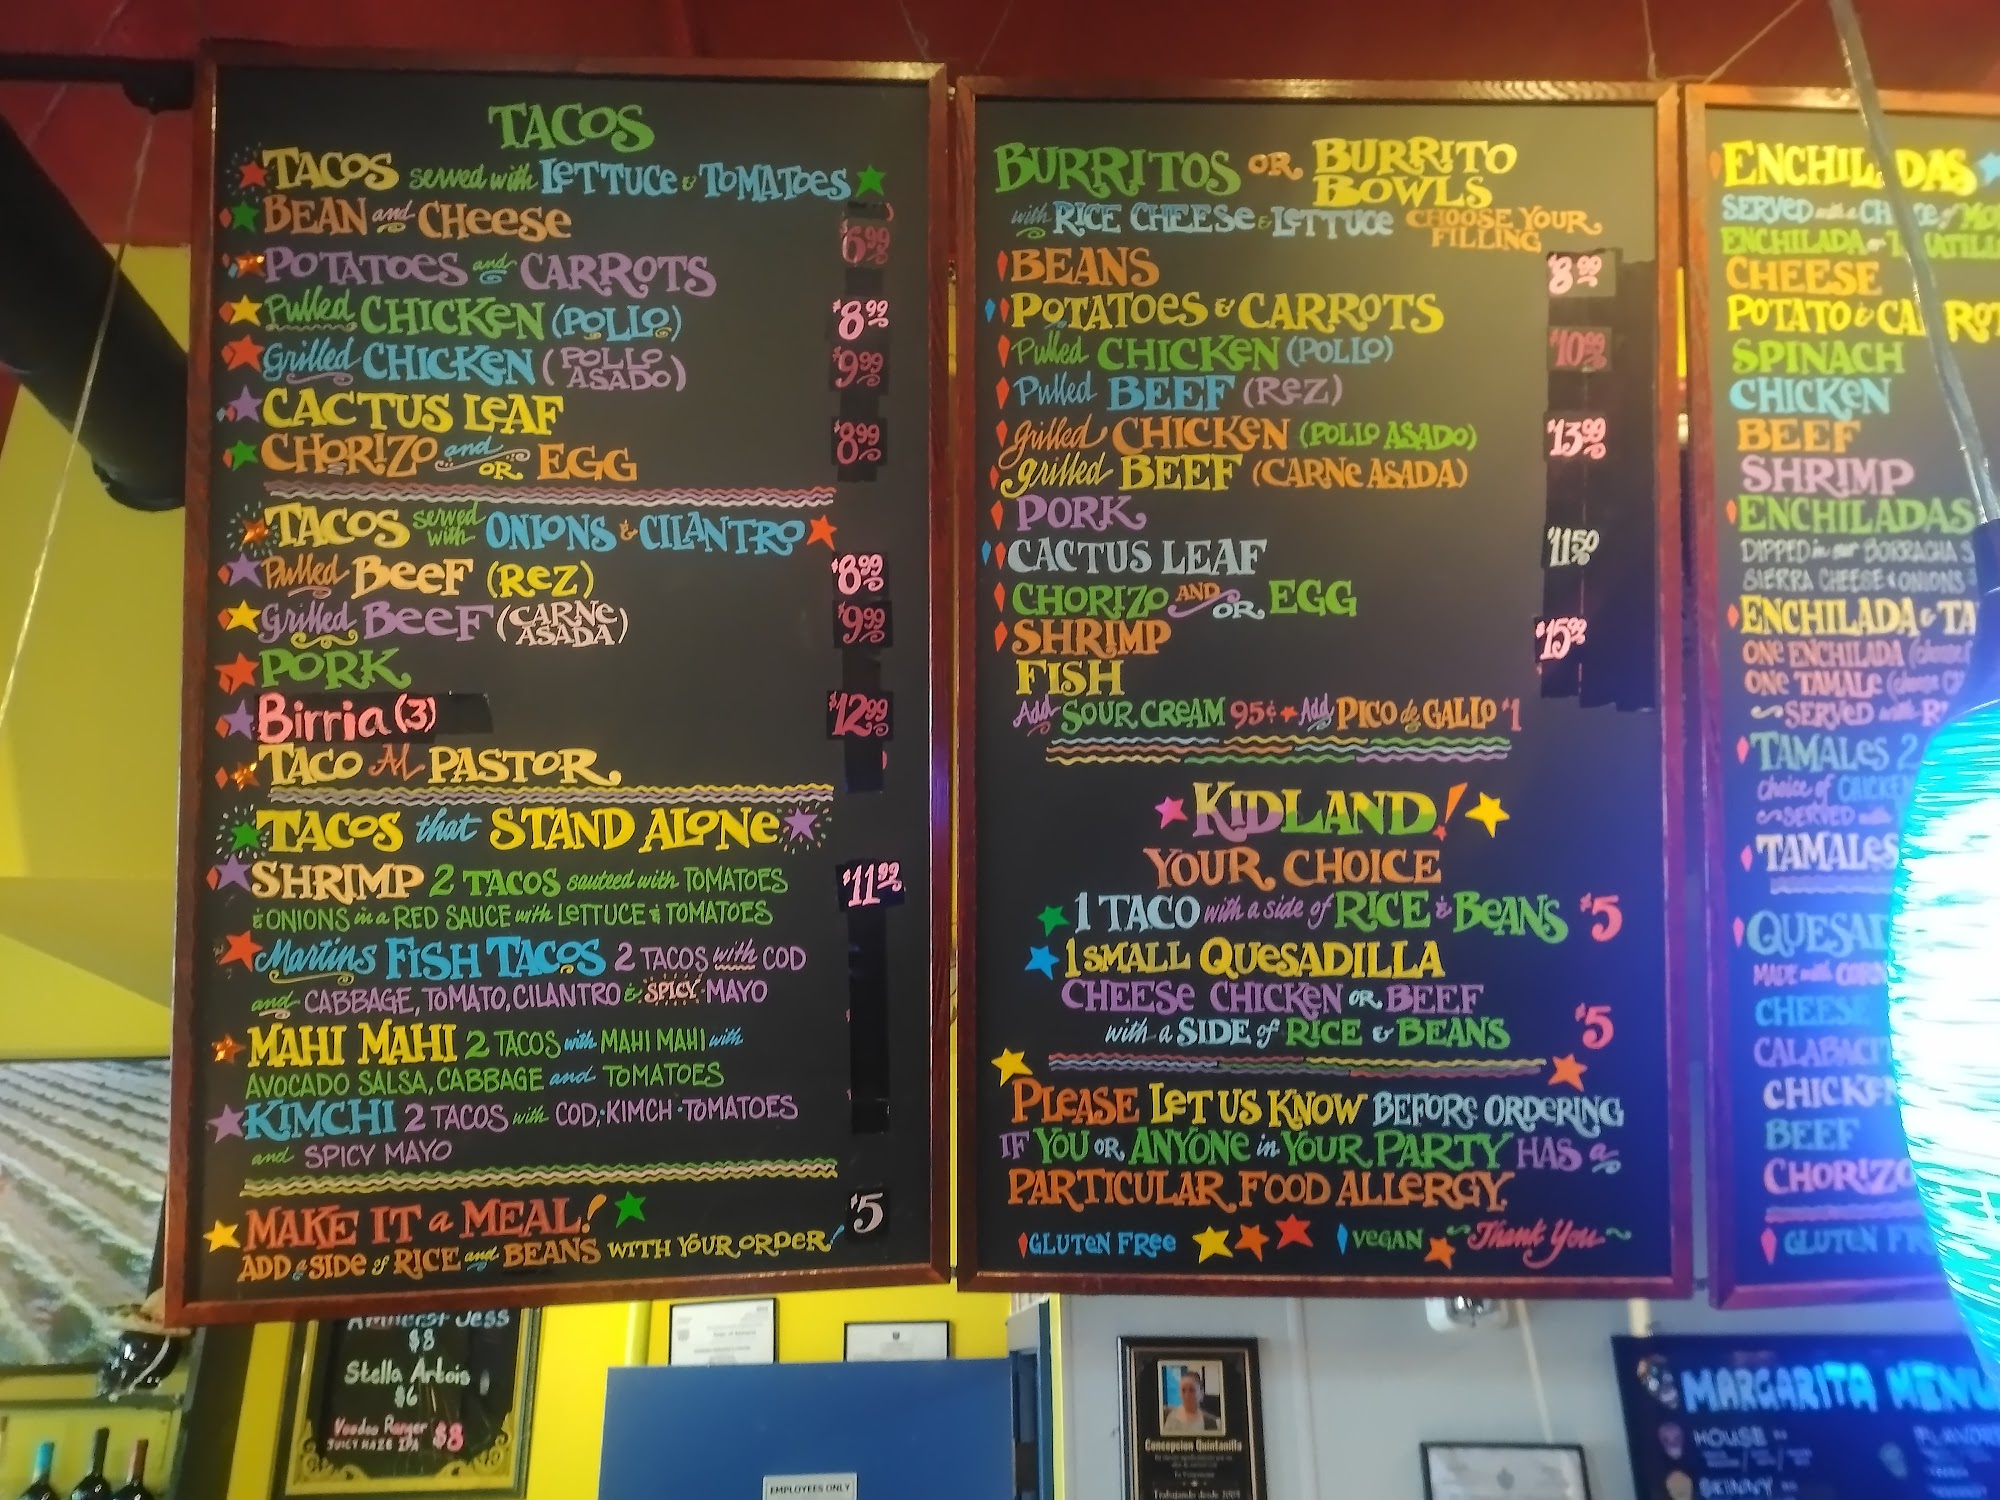 TACOS
TACOS served with LETTUCE & TOMATOES
BEAN and CHEESE $6.99
POTATOES and CARROTS
Pulled CHICKEN (POLLO) $8.99
Grilled CHICKEN (POLLO ASADO) $9.99
CACTUS LEAF
CHORIZO and OR EGG $8.99
TACOS served with ONIONS & CILANTRO
Pulled BEEF (REZ) $8.99
Grilled BEEF (CARNE ASADA) $9.99
PORK
Birria (3) $12.99
TACO AL PASTOR
TACOS that STAND ALONE
SHRIMP 2 TACOS sauteed with TOMATOES $11.99
& ONIONS in a RED SAUCE with LETTUCE & TOMATOES
Martins FISH TACOS 2 TACOS with COD
and CABBAGE, TOMATO, CILANTRO & SPICY MAYO
MAHI MAHI 2 TACOS with MAHI MAHI with
AVOCADO SALSA, CABBAGE and TOMATOES
KIMCHI 2 TACOS with COD, KIMCH TOMATOES
and SPICY MAYO
MAKE IT a MEAL! $5
ADD a SIDE of RICE and BEANS WITH YOUR ORDER!
BURRITOS OR BURRITO BOWLS
with RICE CHEESE & LETTUCE CHOOSE YOUR FILLING
BEANS $8.99
POTATOES & CARROTS
Pulled CHICKEN (POLLO) $10.99
Pulled BEEF (REZ)
grilled CHICKEN (POLLO ASADO) $13.99
grilled BEEF (CARNE ASADA)
PORK
CACTUS LEAF $11.50
CHORIZO AND OR EGG
SHRIMP
FISH
Add SOUR CREAM 95¢ Add PICO de GALLO $1
KIDLAND!
YOUR CHOICE
1 TACO with a side of RICE & BEANS $5
1 SMALL QUESADILLA
CHEESE CHICKEN OR BEEF
with a SIDE of RICE & BEANS $5
PLEASE LET US KNOW BEFORE ORDERING
IF YOU OR ANYONE in YOUR PARTY HAS a
PARTICULAR FOOD ALLERGY.
GLUTEN FREE VEGAN Thank You
ENCHILADAS
SERVED with a
ENCHILADA or
CHEESE
POTATO &
SPINACH
CHICKEN
BEEF
SHRIMP
ENCHILADAS
DIPPED in our BORRACHA
SIERRA CHEESE & ONIONS
ENCHILADA &
ONE ENCHILADA
ONE TAMALE
SERVED with
TAMALES 2
Choice of
SERVED
TAMALES
MADE with
CHEESE
CHICKEN
BEEF
CHORIZO
GLUTEN
Jess
$8
Stella Artois
$6
Voodoo Ranger
JUICY HAZE IPA $8
EMPLOYEES ONLY
Concepcion Quintanilla
MARGARITA MENU
HOUSE
SKINNY